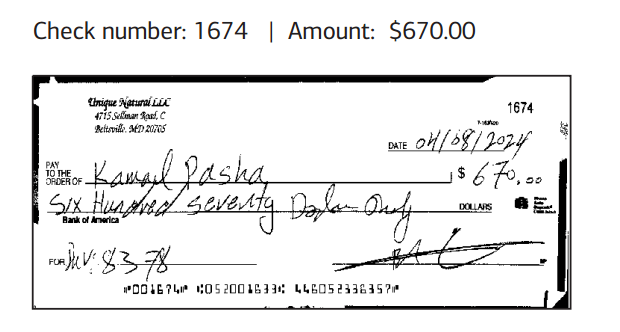 Check number: 1674 | Amount: $670.00
Unique Natural LLC
4715 Sellman Road, C
Beltsville, MD 20705
1674
DATE 04/08/2024
PAY TO THE ORDER OF Kamail Pasha $670.00
Six Hundred seventy Dollar Only DOLLARS
Bank of America
FOR Inv: 8378
⑈001674⑈ ⑆052001633⑆ 446052336357⑈